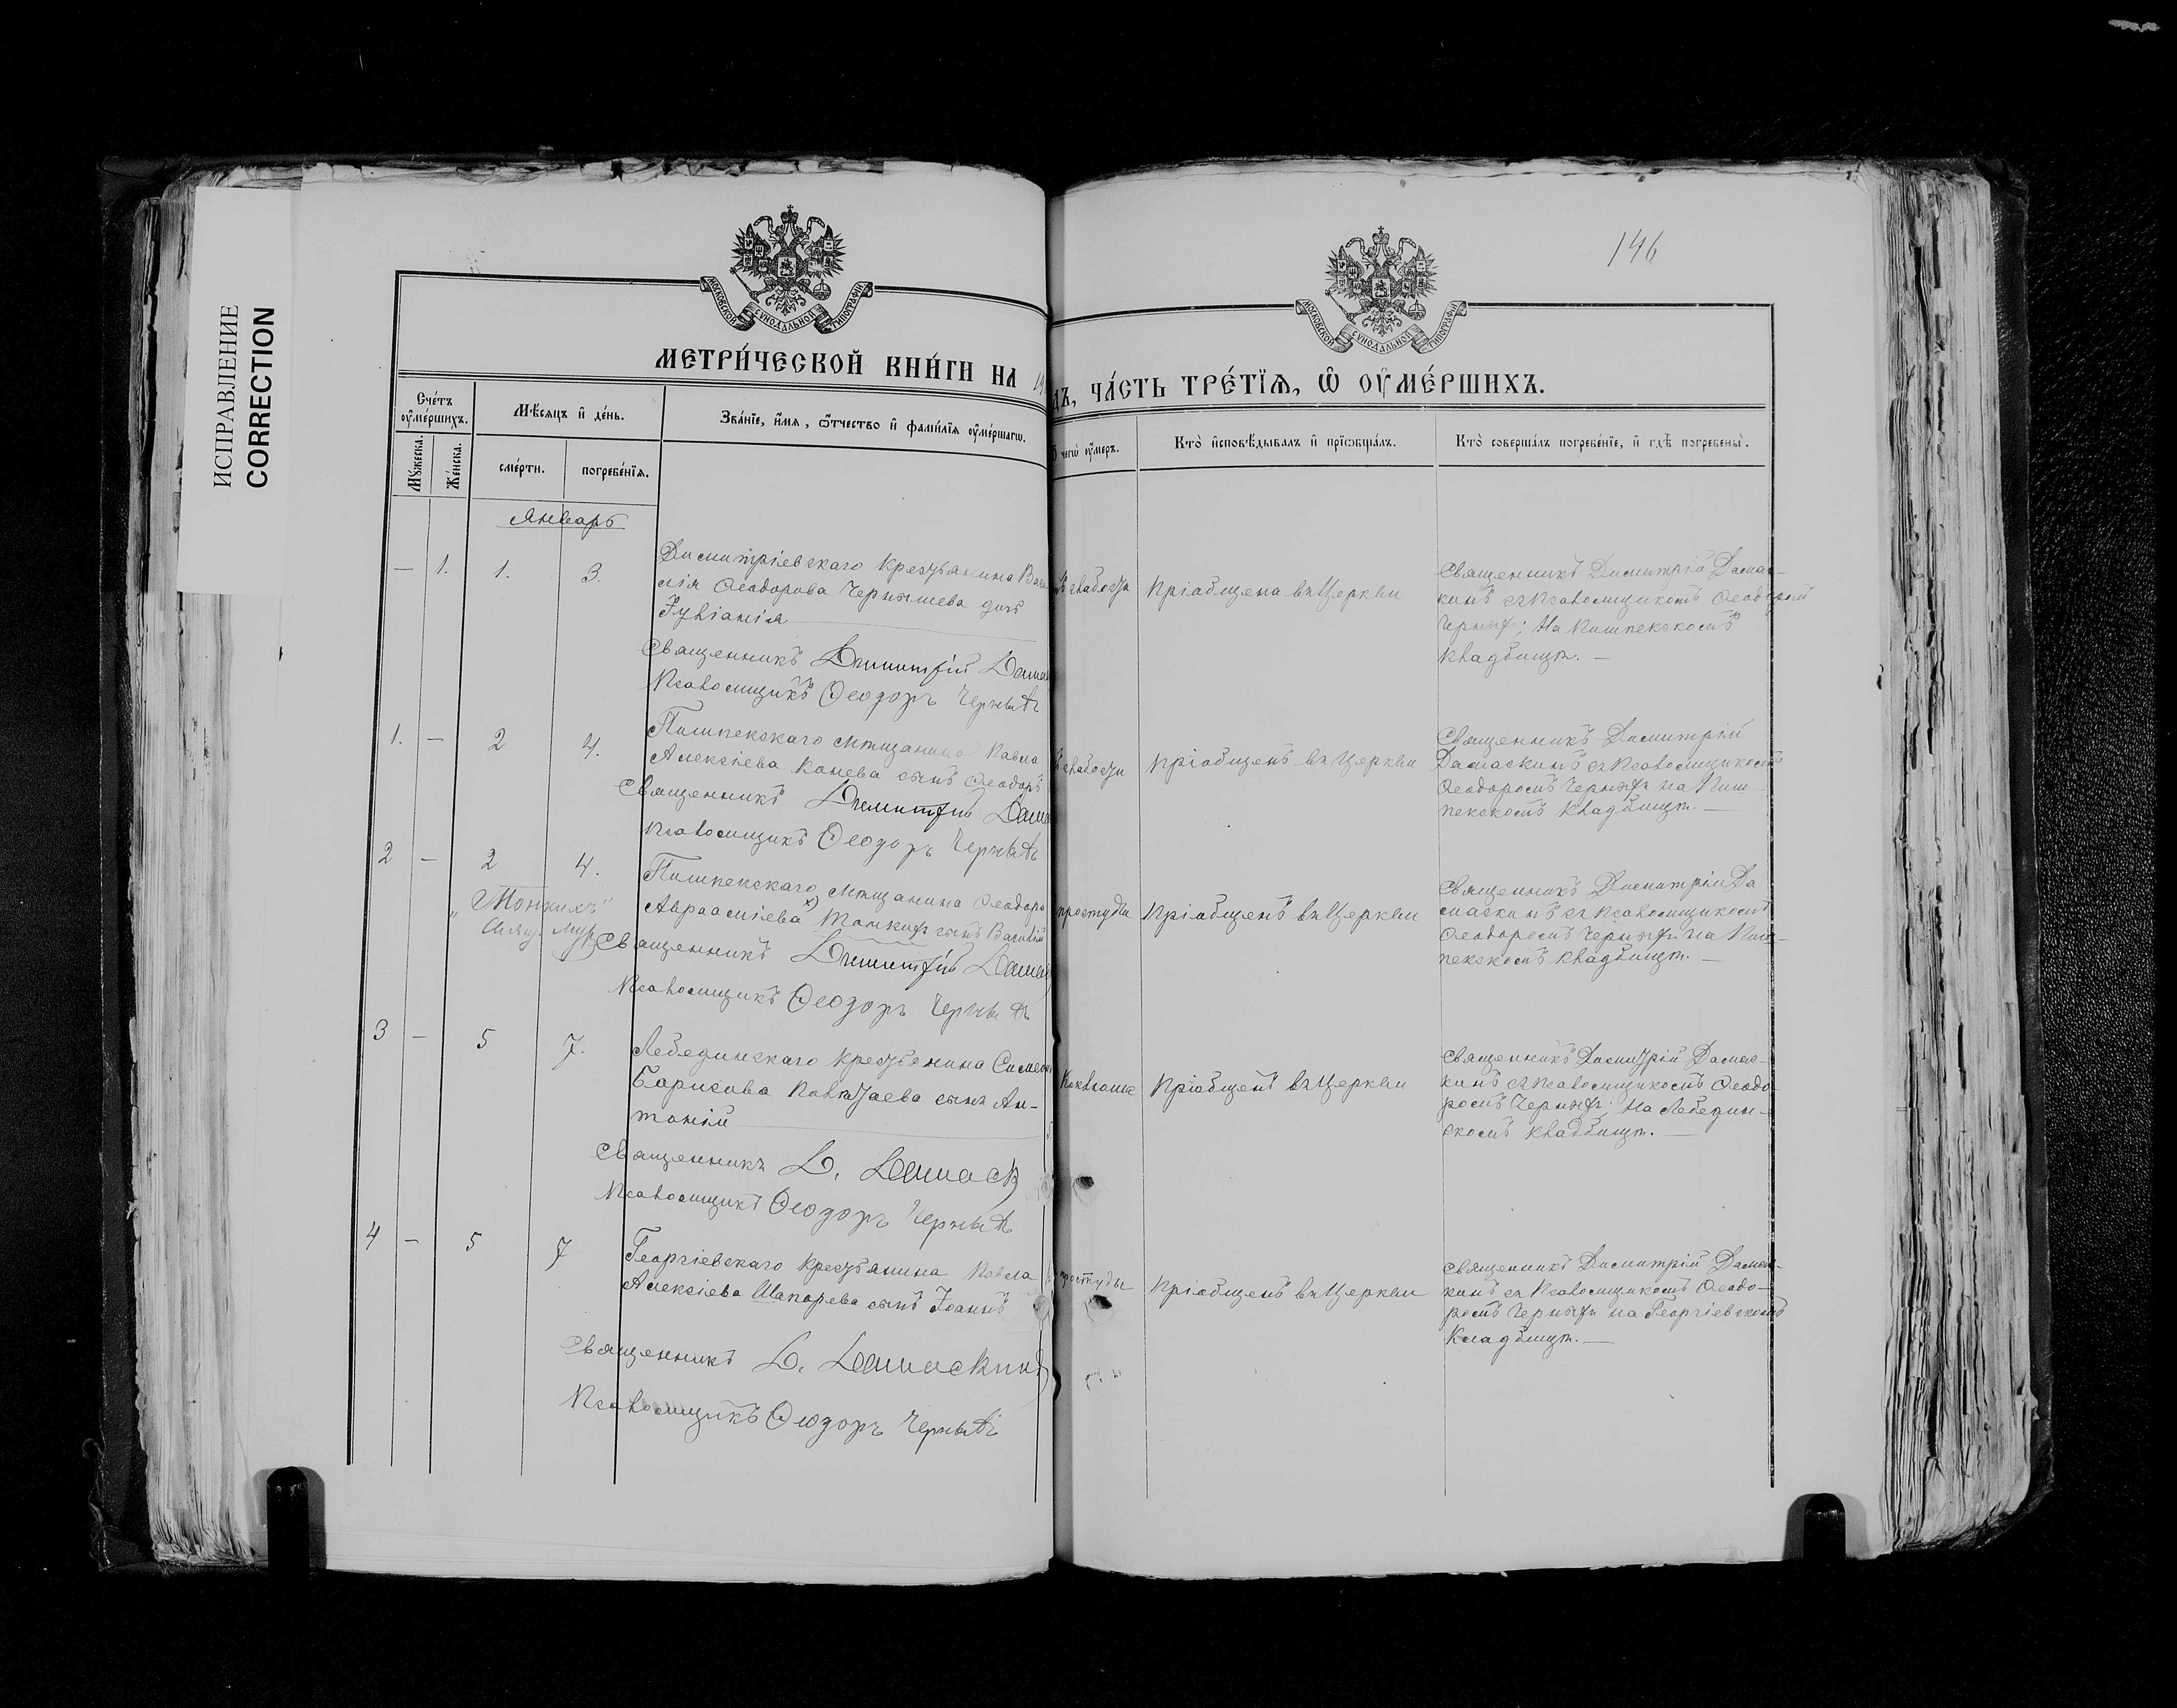 ИСПРАВЛЕНИЕ
CORRECTION
146
МОСКОВСКОЙ СѴНОДАЛЬНОЙ ТИПОГРАФІИ
МОСКОВСКОЙ СѴНОДАЛЬНОЙ ТИПОГРАФІИ
МЕТРИ́ЧЕСКОЙ КНИ́ГИ НА 19
ДЪ, ЧА́СТЬ ТРЕ́ТЇѦ, Ѡ҆ ОУ҆МЕ́РШИХЪ.
Сче́тъ оу҆ме́ршихъ.
Мꙋ́жеска.
Же́нска.
Мѣ́сяцъ и҆ де́нь.
сме́рти.
погребе́нїѧ.
Зва́нїе, и҆́мѧ, ѻ҆́тчество и҆ фами́лїѧ оу҆ме́ршагѡ.
чегѡ̀ оу҆́меръ.
Кто̀ и҆сповѣ́дывалъ и҆ прїѡбща́лъ.
Кто̀ соверша́лъ погребе́нїе, и҆ гдѣ̀ погребены̀.
Январь
— 1. 1. 3.
Димитріевскаго крестьянина Васи-
лія Ѳеодорова Чернышева дочь
Іуліанія
Священникъ Димитрій Дамас
Псаломщикъ Ѳеодоръ Черныхъ
слабости
Пріобщена въ Церкви
Священникъ Димитрій Дамас-
кинъ съ Псаломщикомъ Ѳеодоромъ
Черныхъ; На Пишпекскомъ
кладбищѣ. —
1. — 2 4.
Пишпекскаго мѣщанина Павла
Алексіева Конева сынъ Ѳеодоръ
Священникъ Димитрій Дама
Псаломщикъ Ѳеодоръ Черныхъ
слабости
Пріобщенъ въ Церкви
Священникъ Димитрій
Дамаскинъ съ Псаломщикомъ
Ѳеодоромъ Черныхъ на Пиш-
пекскомъ кладбищѣ. —
2 — 2 4.
Пишпекскаго мѣщанина Ѳеодора
Авраамиева х) Тонкихъ сынъ Василій
„Тонкихъ“
Священникъ Димитрій Дамас
Псаломщикъ Ѳеодоръ Черныхъ
простуды
Пріобщенъ въ Церкви
Священникъ Димитрій Да
маскинъ съ Псаломщикомъ
Ѳеодоромъ Черныхъ на Пиш-
пекскомъ кладбищѣ. —
3 — 5 7.
Лебединскаго крестьянина Симеона
Борисова сынъ Ан-
тоній
Священникъ Д. Дамаск
Псаломщикъ Ѳеодоръ Черныхъ
Коклюша
Пріобщенъ въ Церкви
Священникъ Димитрій Дамас-
кинъ съ Псаломщикомъ Ѳеодо-
ромъ Черныхъ; На Лебедин-
скомъ кладбищѣ. —
4 — 5 7
Георгіевскаго крестьянина Павла
Алексіева Шапарева сынъ Іоаннъ
Священникъ Д. Дамаскинъ
Псаломщикъ Ѳеодоръ Черныхъ
простуды
Пріобщенъ въ Церкви
Священникъ Димитрій Дамас-
кинъ съ Псаломщикомъ Ѳеодо-
ромъ Черныхъ на Георгіевскомъ
Кладбищѣ. —